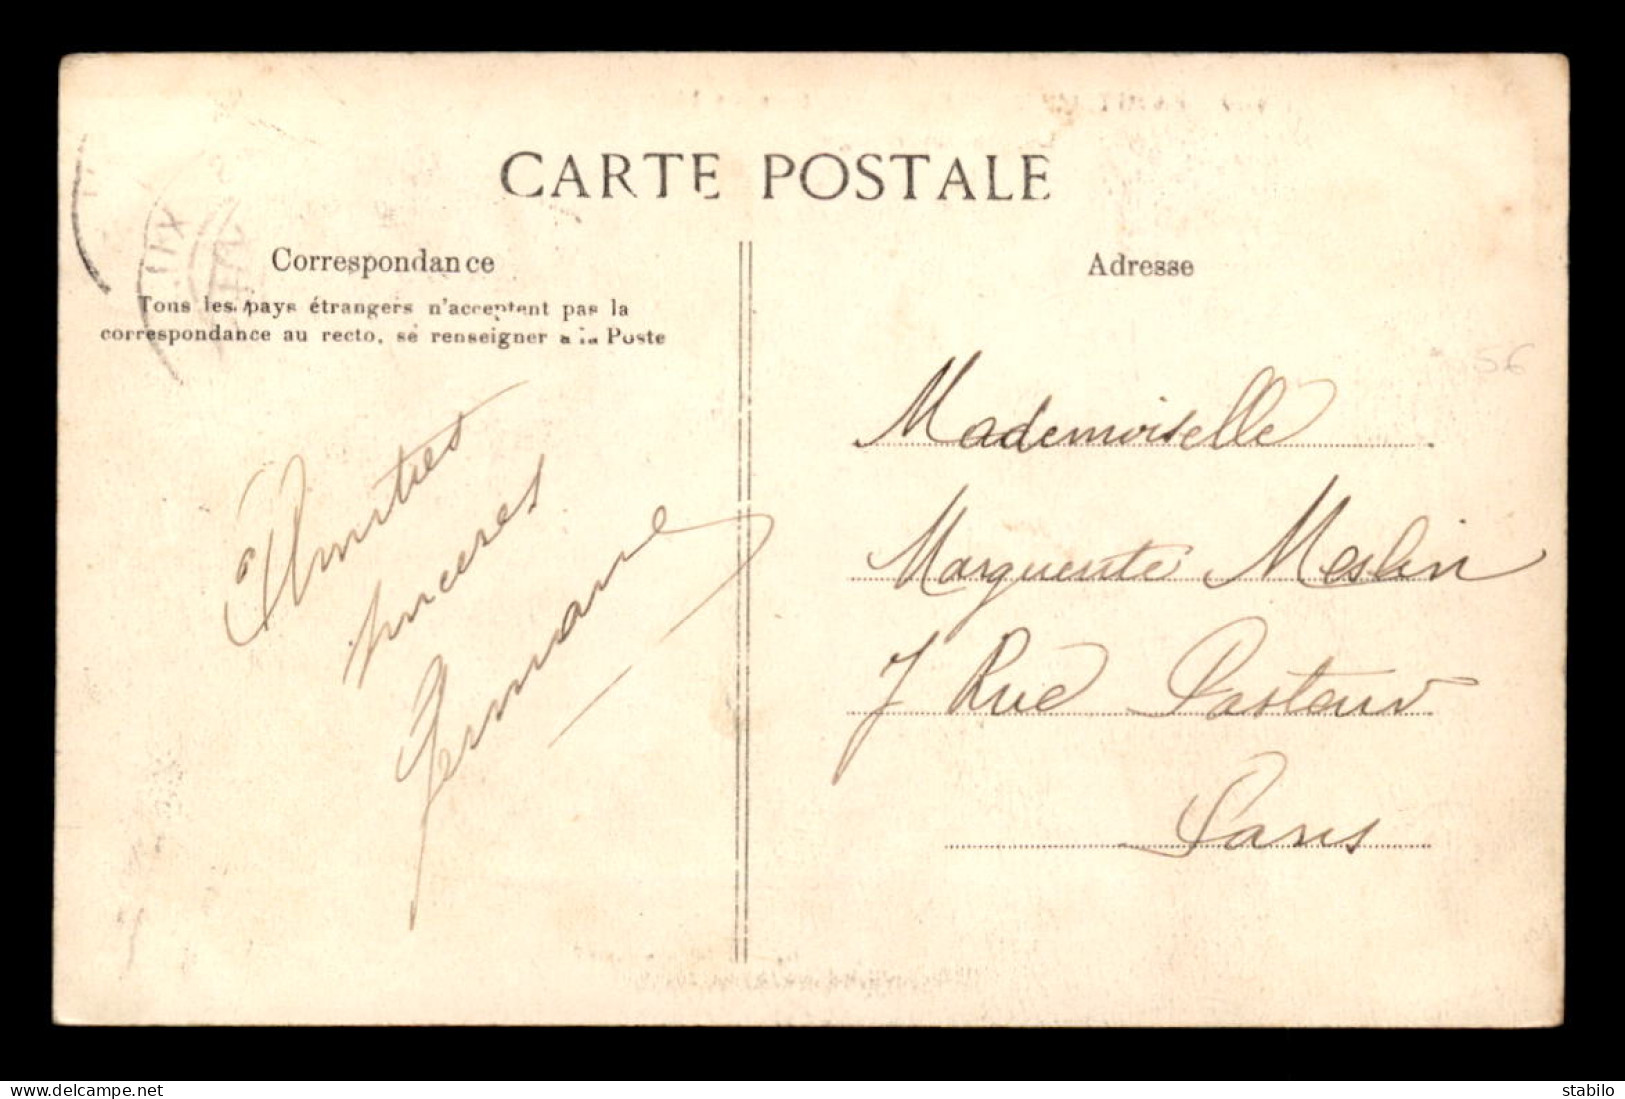 CARTE POSTALE
Correspondance
Tous les pays étrangers n'acceptent pas la
correspondance au recto, se renseigner à la Poste
Amitiés
sincères
Germaine
Adresse
56
Mademoiselle
Marguerite Meslin
7 Rue Pasteur
Paris
delcampe.net
stabilo